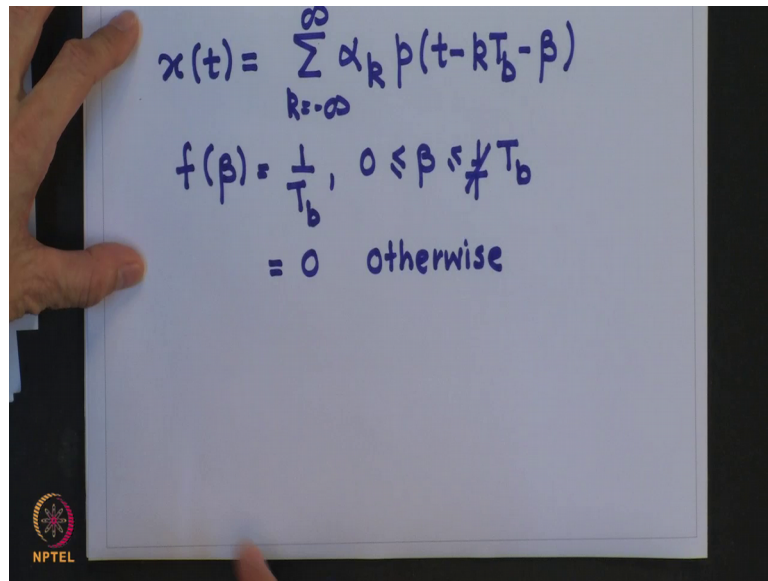 x(t) = ∞ Σ k=-∞ α_k p(t-kT_b-β)
f(β) = 1/T_b, 0 ≤ β ≤ T_b
= 0 otherwise
NPTEL